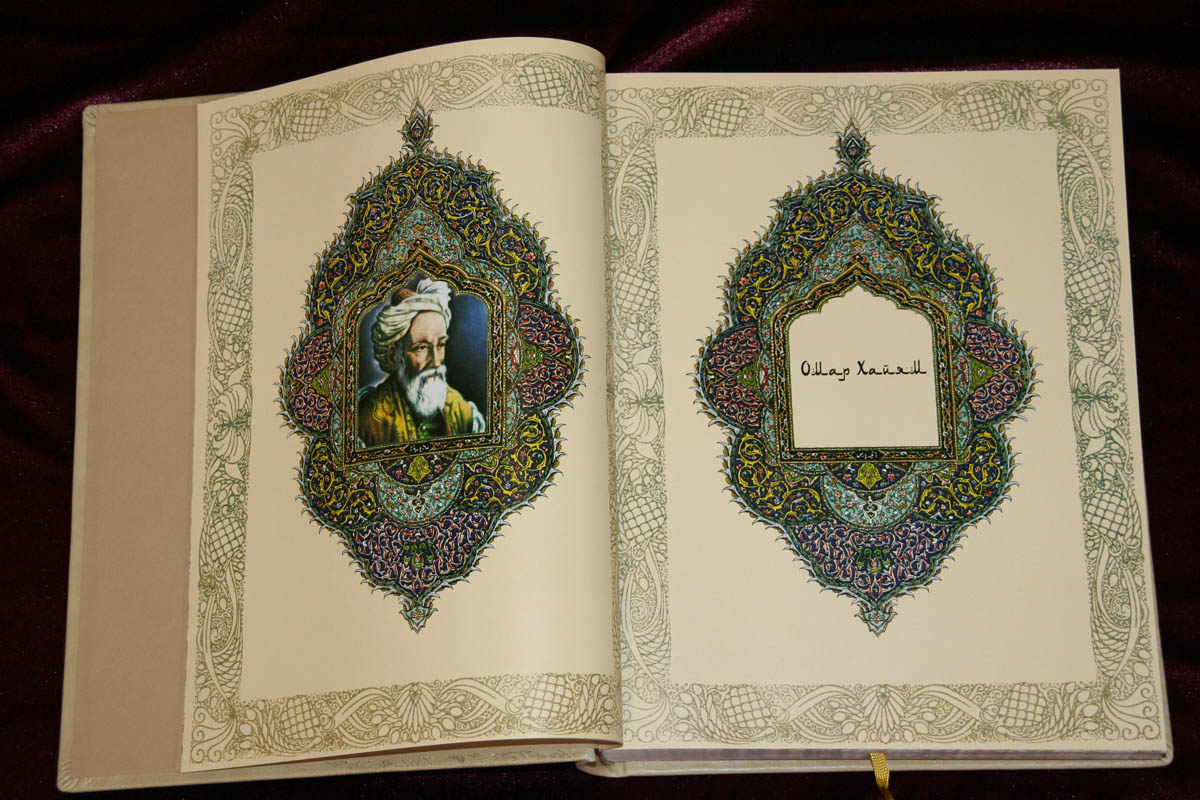 Омар Хайям